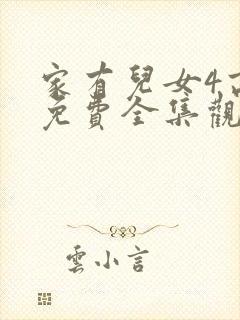 家有兒女4
免費全集觀
雲小言